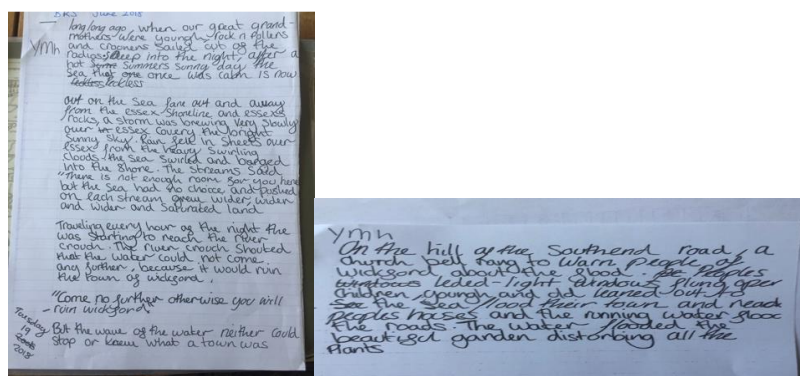 BKS June 2018
long long ago, when our great grand-
mothers were youngh, rock n pollens
and crooners sailed out of the
radios. Deep into the night, after a
hot summers sunny day the
sea that once was calm is now
reckless
out on the sea fare out and away
from the essex shoreline and essexs
rocks, a storm was brewing very slowly
over essex covery the bright
sunny sky. Rain fell in sheets over
essex from the heavy swirling
clouds. the sea swirled and barged
into the shore. The streams said
"There is not enough room for you here
but the sea had no choice and pushed
on. each stream grew wider, wider
and wider and saturated land
Traveling every hour of the night the
was starting to reach the river
crouch. The river crouch shouted
that the water could not come
any further, because it would ruin
the town of wickford.
"Come no further otherwise you will
ruin wickford"
But the wave of the water neither could
stop or know what a town was
ymh
Tuesday
19
2018
ymh
On the hill of the Southend road, a
church bell rang to warn people of
wickford about the flood. Peoples
leded-light windows flung oper
Children, youngh and old leaned out to
the
peoples houses and the running water flood
the roads. The water flooded the
beautiful garden distorbing all the
plants